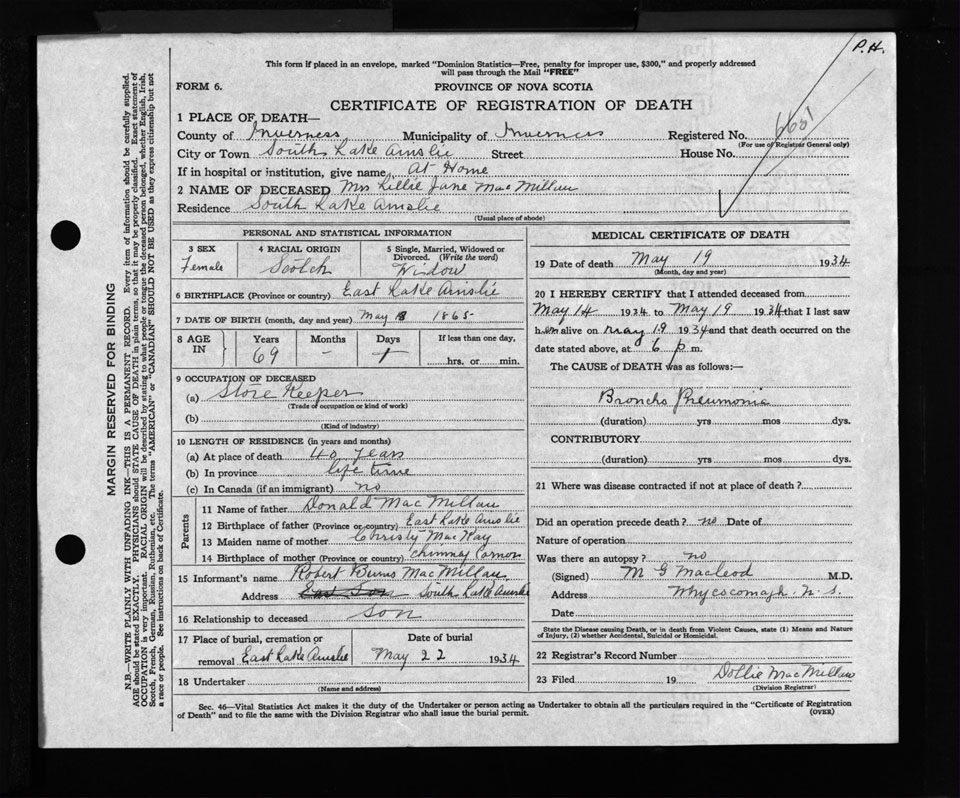 P.H.
This form if placed in an envelope, marked "Dominion Statistics—Free, penalty for improper use, $300," and properly addressed
will pass through the Mail "FREE"
FORM 6.
PROVINCE OF NOVA SCOTIA
CERTIFICATE OF REGISTRATION OF DEATH
1 PLACE OF DEATH—
County of Inverness Municipality of Inverness Registered No. 6601
(For use of Registrar General only)
City or Town South Lake Ainslie Street House No.
If in hospital or institution, give name At Home
2 NAME OF DECEASED Mrs Lillie Jane MacMillan
Residence South Lake Ainslie
(Usual place of abode)
PERSONAL AND STATISTICAL INFORMATION
3 SEX 4 RACIAL ORIGIN 5 Single, Married, Widowed or
Divorced. (Write the word)
Female Scotch Widow
6 BIRTHPLACE (Province or country) East Lake Ainslie
7 DATE OF BIRTH (month, day and year) May 18 1865
8 AGE IN Years Months Days If less than one day,
69 - 1 hrs. or min.
9 OCCUPATION OF DECEASED
(a) Store Keeper
(Trade or occupation or kind of work)
(b)
(Kind of industry)
10 LENGTH OF RESIDENCE (in years and months)
(a) At place of death 40 years
(b) In province life time
(c) In Canada (if an immigrant) no
Parents
11 Name of father Donald MacMillan
12 Birthplace of father (Province or country) East Lake Ainslie
13 Maiden name of mother Christy MacKay
14 Birthplace of mother (Province or country) Chimney Corner
15 Informant's name Robert Burns MacMillan
Address East Son South Lake Ainslie
16 Relationship to deceased Son
17 Place of burial, cremation or Date of burial
removal East Lake Ainslie May 22 1934
18 Undertaker
(Name and address)
MEDICAL CERTIFICATE OF DEATH
19 Date of death May 19 1934
(Month, day and year)
20 I HEREBY CERTIFY that I attended deceased from
May 14 1934 to May 19 1934 that I last saw
h alive on May 19 1934 and that death occurred on
date stated above, at 6 p m.
The CAUSE of DEATH was as follows:—
Broncho Pneumonia
(duration) yrs mos dys.
CONTRIBUTORY
(duration) yrs mos dys.
21 Where was disease contracted if not at place of death?
Did an operation precede death? no Date of
Nature of operation
Was there an autopsy? no
(Signed) M G Macleod M.D.
Address Whycocomagh N.S.
Date
State the Disease causing Death, or in death from Violent Causes, state (1) Means and Nature
of Injury, (2) whether Accidental, Suicidal or Homicidal.
22 Registrar's Record Number
23 Filed 19 Dollie MacMillan
(Division Registrar)
Sec. 46—Vital Statistics Act makes it the duty of the Undertaker or person acting as Undertaker to obtain all the particulars required in the "Certificate of Registration
of Death" and to file the same with the Division Registrar who shall issue the burial permit.
(OVER)
MARGIN RESERVED FOR BINDING
N.B.—WRITE PLAINLY WITH UNFADING INK—THIS IS A PERMANENT RECORD. Every item of information should be carefully supplied.
AGE should be stated EXACTLY. PHYSICIANS should STATE CAUSE OF DEATH in plain terms, so that it may be properly classified. Exact statement of
OCCUPATION is very important. RACIAL ORIGIN will be described by stating to what people or tongue the deceased person belonged, whether English, Irish,
Scotch, French, German, Russian, Ruthenian, etc. The terms "AMERICAN" or "CANADIAN" SHOULD NOT BE USED as they express citizenship but not
a race or people. See instructions on back of Certificate.